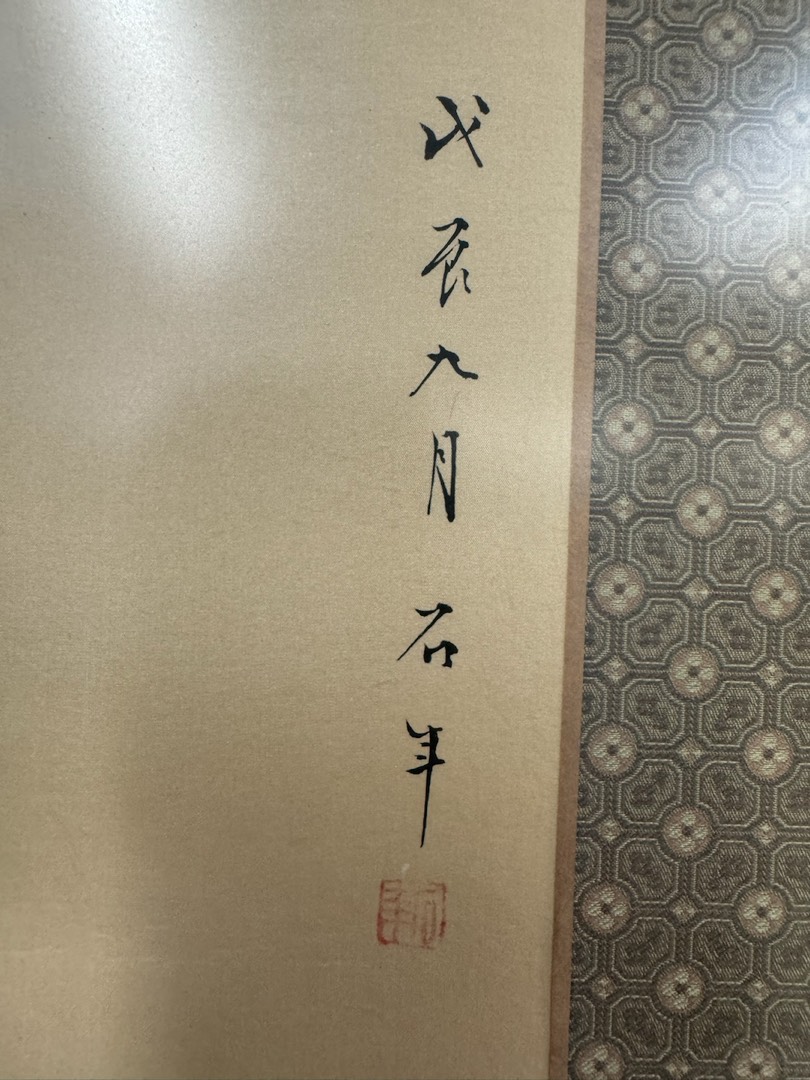 戊辰九月 石年